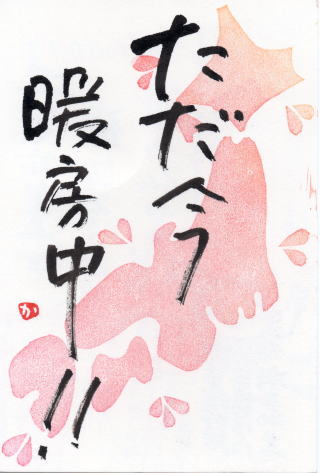 ただ今
暖房中!!
か